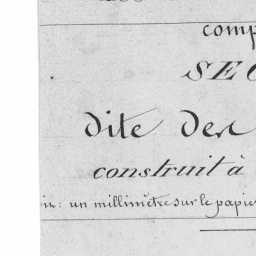 comp
SEC
dite des
construit à
un millimètre sur le papier